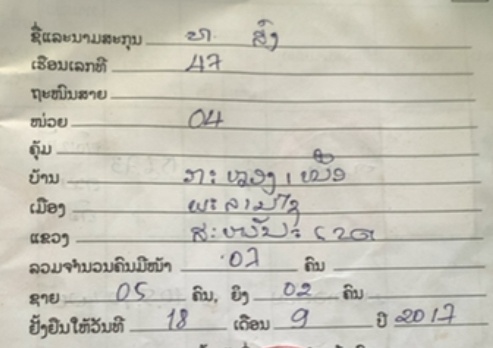 ຊື່ແລະນາມສະກຸນ ທ. ສົງ
ເຮືອນເລກທີ 47
ຖະໜົນສາຍ
ໜ່ວຍ 04
ຄຸ້ມ
ບ້ານ
ເມືອງ
ແຂວງ ສະຫວັນນະເຂດ
ລວມຈຳນວນຄົນມີໜ້າ 07 ຄົນ
ຊາຍ 05 ຄົນ, ຍິງ 02 ຄົນ
ຢັ້ງຢືນໃຫ້ວັນທີ 18 ເດືອນ 9 ປີ 2017